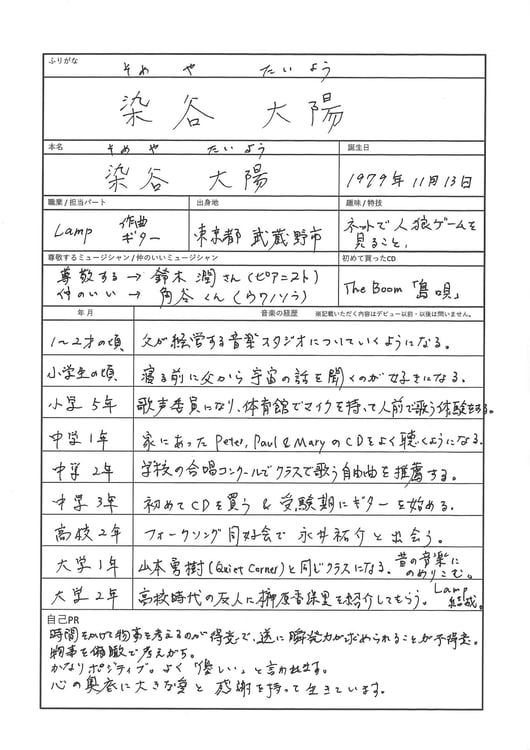 ふりがな
そめ や たい よう
染谷 大陽
本名
そめ や たい よう
染谷 大陽
誕生日
1979年11月13日
職業 / 担当パート
Lamp 作曲
ギター
出身地
東京都 武蔵野市
趣味 / 特技
ネットで人狼ゲームを
見ること。
尊敬するミュージシャン / 仲のいいミュージシャン
尊敬する → 鈴木潤さん(ピアニスト)
仲のいい → 角谷くん(ウワノソラ)
初めて買ったCD
The Boom「島唄」
年月
音楽の経歴
※記載いただく内容はデビュー以前・以後は問いません。
1〜2才の頃 父が経営する音楽スタジオについていくようになる。
小学生の頃 寝る前に父から宇宙の話を聞くのが好きになる。
小学5年 歌声委員になり、体育館でマイクを持って人前で歌う体験をする。
中学1年 家にあったPeter, Paul & MaryのCDをよく聴くようになる。
中学2年 学校の合唱コンクールでクラスで歌う自由曲を推薦する。
中学3年 初めてCDを買う & 受験期にギターを始める。
高校2年 フォークソング同好会で永井祐介と出会う。
大学1年 山本勇樹(Quiet Corner)と同じクラスになる。昔の音楽に
のめりこむ。
大学2年 高校時代の友人に榊原香保里を紹介してもらう。Lamp
結成。
自己PR
時間をかけて物事を考えるのが得意で、逆に瞬発力が求められることが不得意。
物事を俯瞰で考えがち。
かなりポジティブ。よく「優しい」と言われます。
心の奥底に大きな愛と感謝を持って生きています。